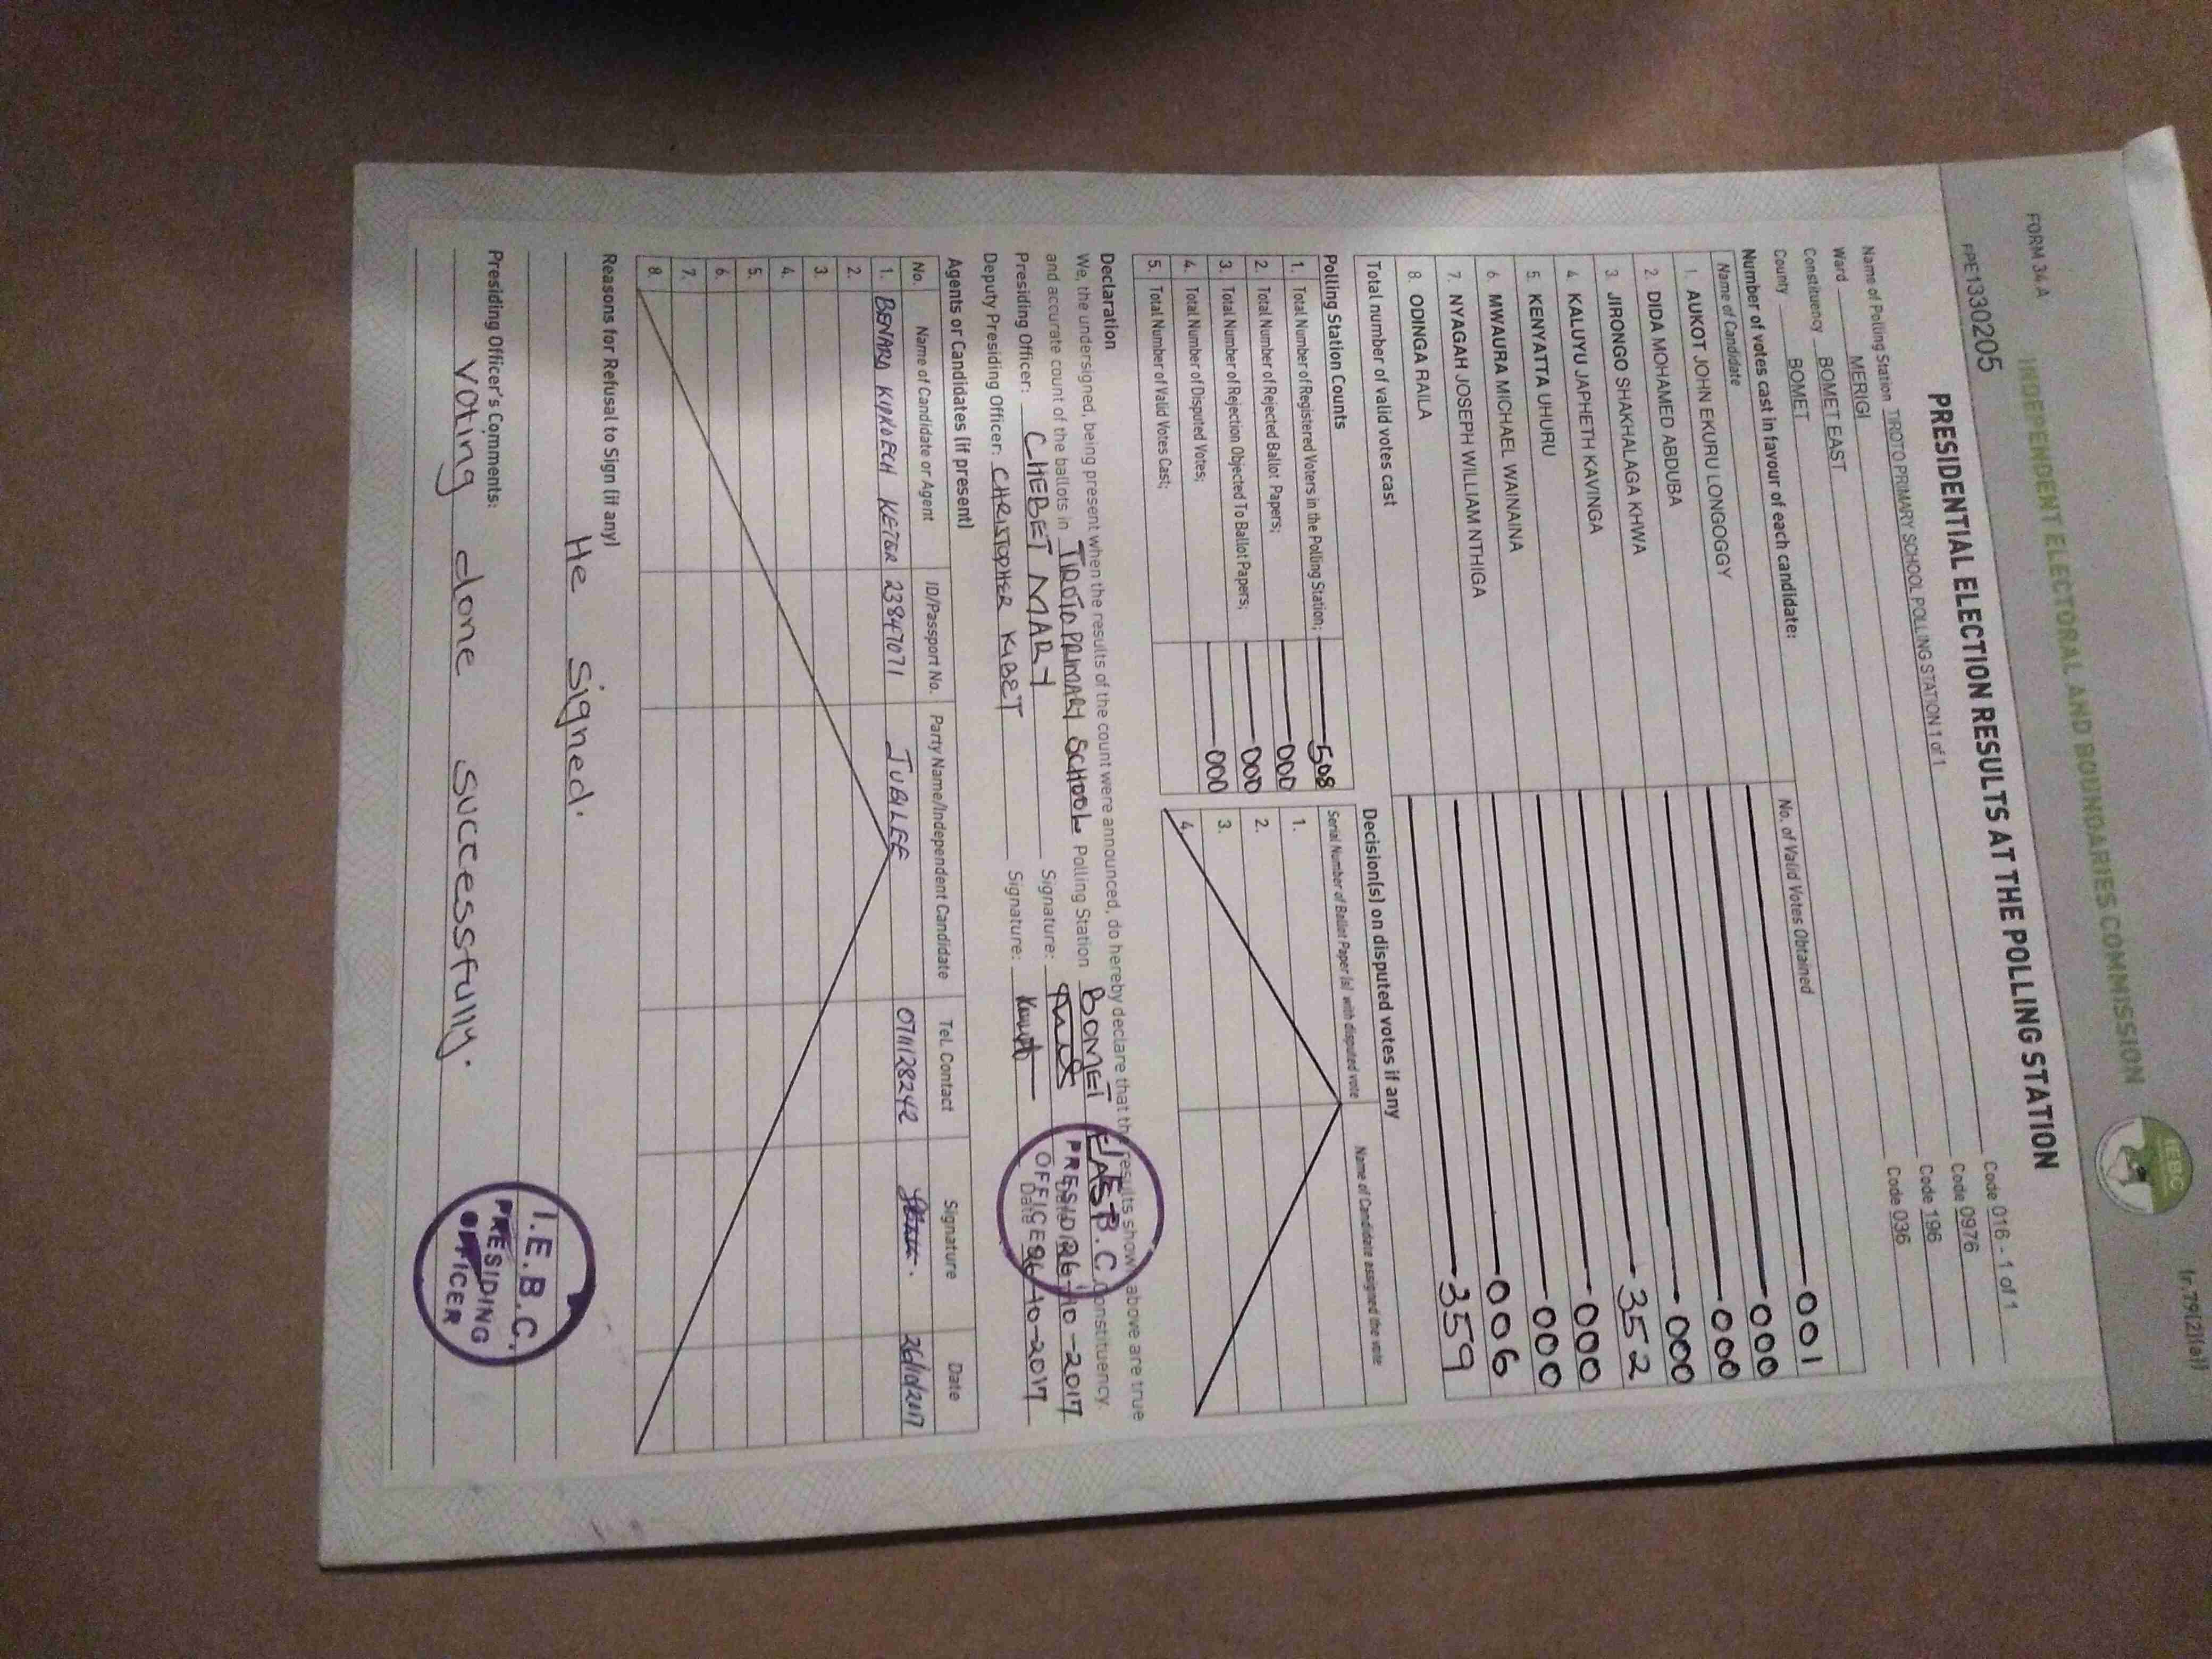 Ir.79(2)(a)
INDEPENDENT ELECTORAL AND BOUNDARIES COMMISSION
IEBC
FORM 34 A
PRESIDENTIAL ELECTION RESULTS AT THE POLLING STATION
PE1330205
Name of Polling Station TIROTO PRIMARY SCHOOL POLLING STATION 1 of 1 Code 016 - 1 of 1
Ward MERIGI Code 0976
Constituency BOMET EAST Code 196
County BOMET Code 036
Number of votes cast in favour of each candidate:
Name of Candidate No. of Valid Votes Obtained
1. AUKOT JOHN EKURU LONGOGGY 001
2. DIDA MOHAMED ABDUBA 000
3. JIRONGO SHAKHALAGA KHWA 000
4. KALUYU JAPHETH KAVINGA 000
5. KENYATTA UHURU 352
6. MWAURA MICHAEL WAINAINA 000
7. NYAGAH JOSEPH WILLIAM NTHIGA 000
8. ODINGA RAILA 006
Total number of valid votes cast 359
Polling Station Counts
1. Total Number of Registered Voters in the Polling Station; 508
2. Total Number of Rejected Ballot Papers; 000
3. Total Number of Rejection Objected To Ballot Papers; 000
4. Total Number of Disputed Votes; 000
5. Total Number of Valid Votes Cast;
Decision(s) on disputed votes if any
Serial Number of Ballot Paper (s) with disputed vote Name of Candidate assigned the vote
1.
2.
3.
4.
Declaration
We, the undersigned, being present when the results of the count were announced, do hereby declare that the results shown above are true
and accurate count of the ballots in TIROTO PRIMARY SCHOOL Polling Station BOMET EAST Constituency.
Presiding Officer: CHEBET MARY Signature: Date 26-10-2017
Deputy Presiding Officer: CHRISTOPHER KIBET Signature: Date 26-10-2017
I.E.B.C.
PRESIDING
OFFICER
Agents or Candidates (if present)
No. Name of Candidate or Agent ID/Passport No. Party Name/Independent Candidate Tel. Contact Signature Date
1. BENARD KIPKOECH KETER 23847071 JUBILEE 0711128242 26/10/2017
2.
3.
4.
5.
6.
7.
8.
Reasons for Refusal to Sign (if any)
He signed.
Presiding Officer's Comments:
voting done successfully.
I.E.B.C.
PRESIDING
OFFICER